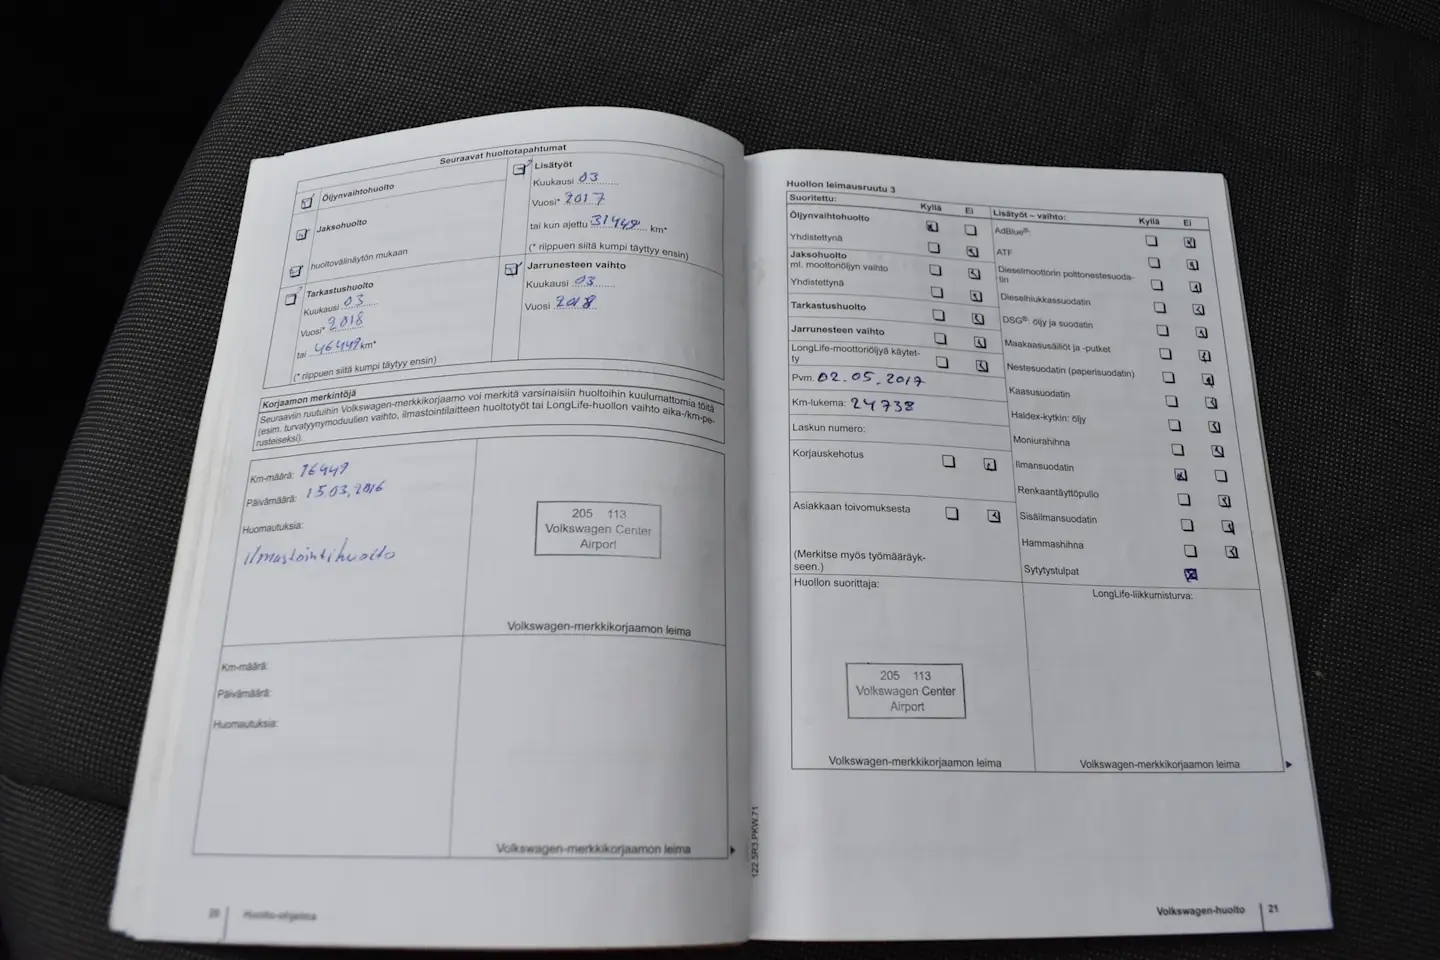 Seuraavat huoltotapahtumat
Öljynvaihtohuolto
Jaksohuolto
huoltovälinäytön mukaan
Tarkastushuolto
Kuukausi 03
Vuosi* 2018
tai 46449 km*
(* riippuen siitä kumpi täytyy ensin)
Lisätyöt
Kuukausi 03
Vuosi* 2017
tai kun ajettu 31449 km*
(* riippuen siitä kumpi täyttyy ensin)
Jarrunesteen vaihto
Kuukausi 03
Vuosi 2018
Korjaamon merkintöjä
Seuraaviin ruutuihin Volkswagen-merkkikorjaamo voi merkitä varsinaisiin huoltoihin kuulumattomia töitä
(esim. turvatyynymoduulien vaihto, ilmastointilaitteen huoltotyöt tai LongLife-huollon vaihto aika-/km-pe-
rusteiseksi).
Km-määrä: 16449
Päivämäärä: 15.03.2016
Huomautuksia:
Ilmastointihuolto
205 113
Volkswagen Center
Airport
Volkswagen-merkkikorjaamon leima
Km-määrä:
Päivämäärä:
Huomautuksia:
Volkswagen-merkkikorjaamon leima
20 Huolto-ohjelma
Huollon leimausruutu 3
Suoritettu: Kyllä Ei
Öljynvaihtohuolto
Yhdistettynä
Jaksohuolto
ml. moottoriöljyn vaihto
Yhdistettynä
Tarkastushuolto
Jarrunesteen vaihto
LongLife-moottoriöljyä käytet-
ty
Pvm. 02.05.2017
Km-lukema: 24738
Laskun numero:
Korjauskehotus
Asiakkaan toivomuksesta
(Merkitse myös työmääräyk-
seen.)
Huollon suorittaja:
205 113
Volkswagen Center
Airport
Volkswagen-merkkikorjaamon leima
Lisätyöt – vaihto: Kyllä Ei
AdBlue®:
ATF
Dieselmoottorin polttonestesuoda-
tin
Dieselhiukkassuodatin
DSG®: öljy ja suodatin
Maakaasusäiliöt ja -putket
Nestesuodatin (paperisuodatin)
Kaasusuodatin
Haldex-kytkin: öljy
Moniurahihna
Ilmansuodatin
Renkaantäyttöpullo
Sisäilmansuodatin
Hammashihna
Sytytystulpat
LongLife-liikkumisturva:
Volkswagen-merkkikorjaamon leima
122.5R3.PKW.71
Volkswagen-huolto 21